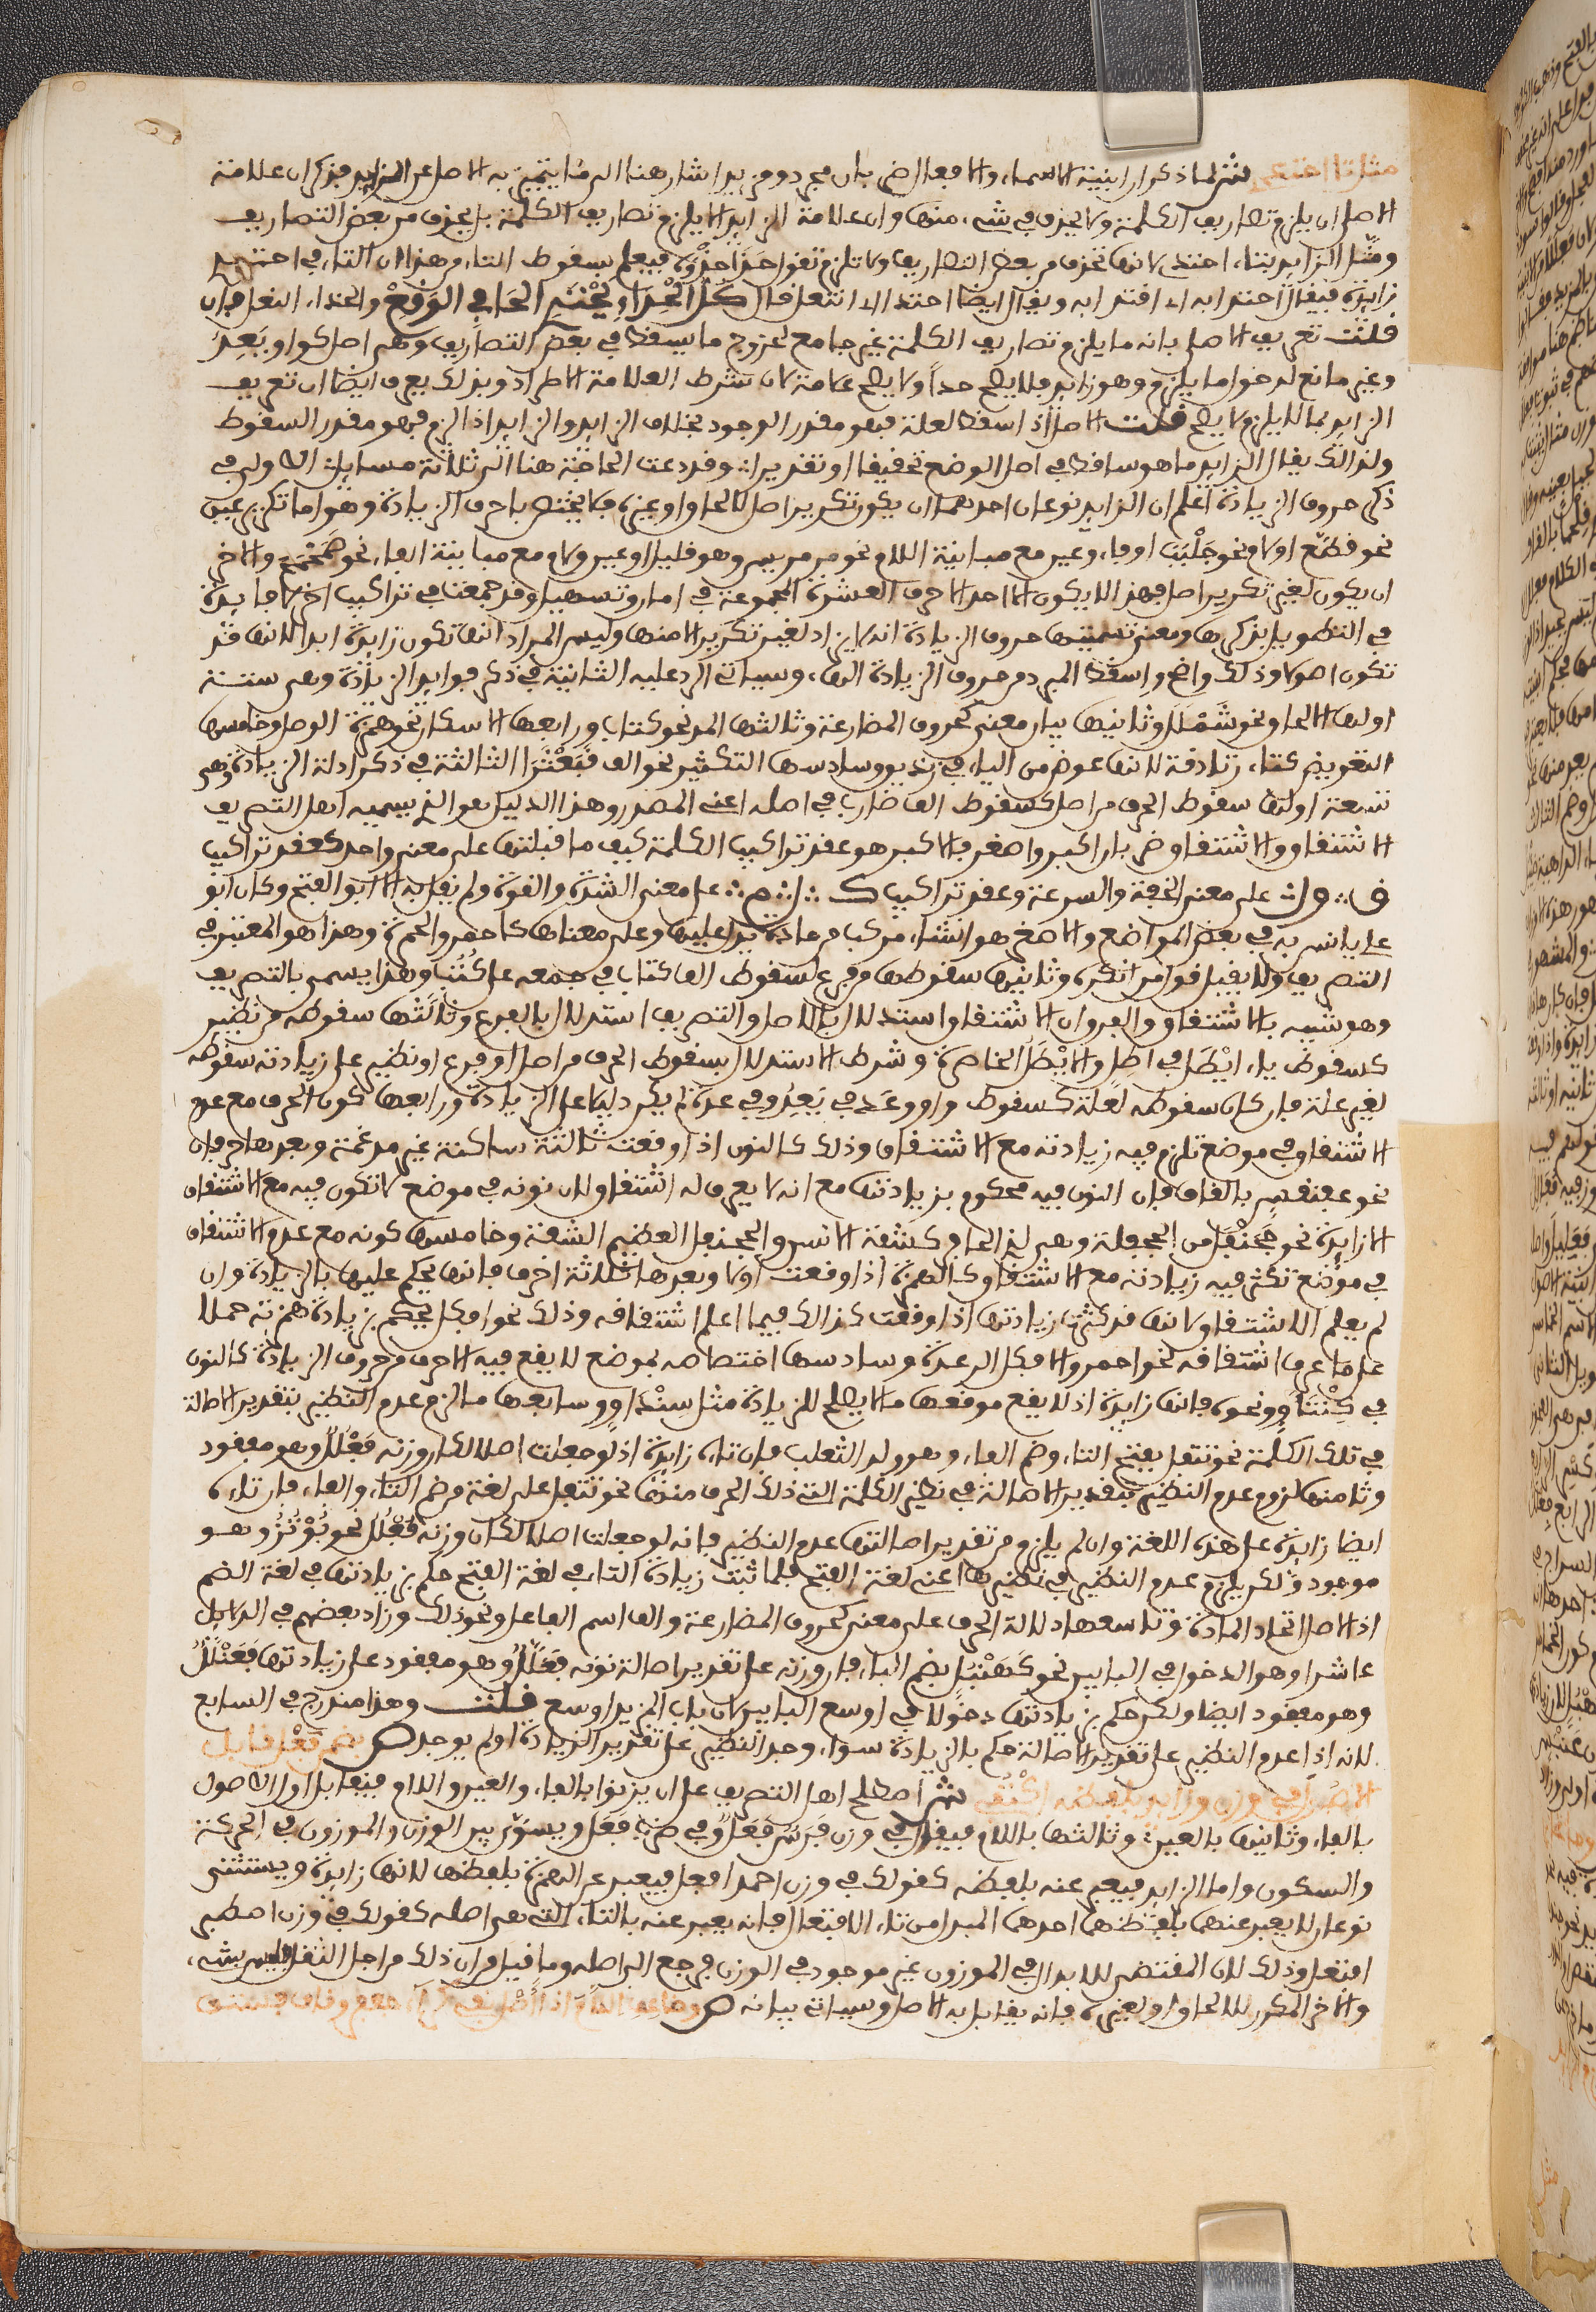 مثل تا احتذي ش لما ذكر ان ابنية الاسماء والافعال ضربان مجرد ومزيد اشار هنا الى ما يتميز به الاصل عن الزايد فذكر ان علامة
الاصل ان يلزم تصاريف الكلمة ولا يحذف في شيء منها وان علامة الزايد الا يلزم تصاريف الكلمة بل يحذف من بعض التصاريف
ومثل الزايد بتاء احتذي لانها تحذف من بعض التصاريف ولا تلزم تقول حذا حذوه فيعلم بسقوط التاء من هذا ان التاء في احتذي
زايدة فيقال احتذى به اي اقتدى به ويقال ايضا احتذى اي انتعل قال كل الحذاء يحتذي الحافي الوقع والحذاء النعل فان
قلت تعريف الاصل بانه ما يلزم تصاريف الكلمة غير جامع لخروج ما يسقط في بعض التصاريف وهو اصل كواو يعد
وغير مانع لدخول ما يلزم وهو زايد فلا يصلح حدا ولا يصلح علامة لان شرط العلامة الاطراد وبذلك يعرف ايضا ان تعريف
الزايد بما لا يلزم لا يصح قلت الاصل اذا سقط لعلة فهو مقدر الوجود بخلاف الزايد والزايد اذا لزم فهو مقدر السقوط
ولذلك يقال الزايد ما هو ساقط في اصل الوضع تحقيقا او تقديرا وقد دعت الحاجة هنا الى ثلاثة مسايل الاولى في
ذكر حروف الزيادة اعلم ان الزايد نوعان احدهما ان يكون تكرير اصل لالحاق او غيره فلا يختص باحرف الزيادة وهو اما تكرير عين
نحو قطع او لام نحو جلبب او فاء وعين مع مباينة اللام نحو مرمريس وهو قليل او عين ولام مع مباينة الفاء نحو صمحمح والاخر
ان يكون لغير تكرير اصل فهذا لا يكون الا احد الاحرف العشرة المجموعة في امان وتسهيل وقد جمعت في تراكيب اخر لا فايدة
في التطويل بذكرها ومعنى تسميتها حروف الزيادة انه لا يزاد لغير تكرير الا منها وليس المراد انها تكون زايدة ابدا لانها قد
تكون اصولا وذلك واضح واسقط المبرد من حروف الزيادة الهاء وسياتي الرد عليه الثانية في ذكر فوايد الزيادة وهي ستة
اولها الالحاق نحو شملل وثانيها بيان معنى كحروف المضارعة وثالثها المد نحو كتاب ورابعها الاسكان نحو همزة الوصل وخامسها
التعويض كتاء زنادقة لانها عوض من الياء في زنديق وسادسها التكثير نحو الف قبعثرا الثالثة في ذكر ادلة الزيادة وهي
تسعة اولها سقوط الحرف من اصل كسقوط الف ضارب في اصله اعني المصدر وهذا الدليل هو الذي يسميه اهل التصريف
الاشتقاق والاشتقاق ضربان اكبر واصغر فالاكبر هو عقد تراكيب الكلمة كيف ما قلبتها على معنى واحد كعقد تراكيب
ق و ل على معنى الخفة والسرعة وعقد تراكيب ك ل م على معنى الشدة والقوة ولم يقل به الا ابو الفتح وكان ابو
علي يانس به في بعض المواضع والاصغر هو انشاء مركب من مادة يدل عليها وعلى معناها كاحمر والحمرة وهذا هو المعتبر في
التصريف ولا يقبل قول من انكره وثانيها سقوطه من فرع كسقوط الف كتاب في جمعه على كتب وهذا يسمى بالتصريف
وهو شبيه بالاشتقاق والفرق ان الاشتقاق استدلال بالاصل والتصريف استدلال بالفرع وثالثها سقوطه من نظير
كسقوط ياء ايطل في اطل والايطل الخاصرة وشرط الاستدلال بسقوط الحرف من اصل او فرع او نظير على زيادته سقوطه
لغير علة فان كان سقوطه لعلة كسقوط واو وعد في يعد وفي عدة لم يكن دليلا على الزيادة ورابعها كون الحرف مع عدم
الاشتقاق في موضع تلزم فيه زيادته مع الاشتقاق وذلك كالنون اذا وقعت ثالثة ساكنة غير مدغمة وبعدها حرفان
نحو عقنقس بالقاف فان النون فيه محكوم بزيادتها مع انه لا يعرف له اشتقاق لان نونه في موضع لا تكون فيه مع الاشتقاق
الا زايدة نحو جحنفل من الجحفلة وهي لذي الحافر كشفة الانسان والجحنفل العظيم الشفة وخامسها كونه مع عدم الاشتقاق
في موضع تكثر فيه زيادته مع الاشتقاق كالهمزة اذا وقعت اولا وبعدها ثلاثة احرف فانها يحكم عليها بالزيادة وان
لم يعلم الاشتقاق لانها قد كثرت زيادتها اذا وقعت كذلك فيما اعلم اشتقاقه وذلك نحو افكل يحكم بزيادة همزته حملا
على ما عرف اشتقاقه نحو احمر والافكل الرعدة وسادسها اختصاصه بموضع لا يقع فيه الا حرف من حروف الزيادة كالنون
في كنتاو ونحوه فانها زايدة اذ لا يقع موقعها ما لا يصلح للزيادة مثل سنداو وسابعها ما لزم عدم النظير بتقدير الاصالة
في تلك الكلمة نحو تتفل بفتح التاء وضم الفاء وهو ولد الثعلب فان تاءه زايدة اذ لو جعلت اصلا لكان وزنه فعلل وهو مفقود
وثامنها لزوم عدم النظير بتقدير الاصالة في نظير الكلمة التي ذلك الحرف منها نحو تتفل على لغة من ضم التاء والفاء فان تاءه
ايضا زايدة على هذه اللغة وان لم يلزم من تقدير اصالتها عدم النظير فانه لو جعلت اصلا لكان وزنه فعلل نحو برثن وهو
موجود ولكن يلزم عدم النظير في نظيرها اعني لغة الفتح فلما ثبت زيادة التاء في لغة الفتح حكم بزيادتها في لغة الضم
اذ الاصل اتحاد المادة وتاسعها دلالة الحرف على معنى كحروف المضارعة والف اسم الفاعل ونحو ذلك وزاد بعضهم في الدلايل
عاشرا وهو الدخول في اوسع البابين نحو كنهبل بضم الباء فان وزنه على تقدير اصالة نونه فعلل وهو مفقود وعلى زيادتها فنعلل
وهو مفقود ايضا ولكن حكم بزيادتها دخولا في اوسع البابين لان باب المزيد اوسع قلت وهذا مندرج في السابع
لانه اذا عدم النظير على تقدير الاصالة حكم بالزيادة سواء وجد النظير على تقدير الزيادة او لم يوجد ص بضمن فعل قابل
الاصول في وزن وزايد بلفظه اكتفي ش اصطلح اهل التصريف على ان يزنوا بالفاء والعين واللام فيقابل اول الاصول
بالفاء وثانيها بالعين وثالثها باللام فيقال في وزن فرس فعل وفي ضرب فعل ويسوى بين الوزن والموزون في الحركة
والسكون واما الزايد فيعبر عنه بلفظه كقولك في وزن احمد افعل فيعبر عن الهمزة بلفظها لانها زايدة ويستثنى
نوعان لا يعبر عنهما بلفظهما احدهما المبدل من تاء الافتعال فانه يعبر عنه بالتاء التي هي اصله كقولك في وزن اصطبر
افتعل وذلك لان المقتضي للابدال في الموزون غير موجود في الوزن فرجع الى اصله وما قيل من ان ذلك من اجل الثقل فليس بشيء
والاخر المكرر للالحاق او لغيره فانه يقابل به الاصل وسياتي بيانه ص وضاعف اللام اذا اصل بقي كراء جعفر وقاف فستق